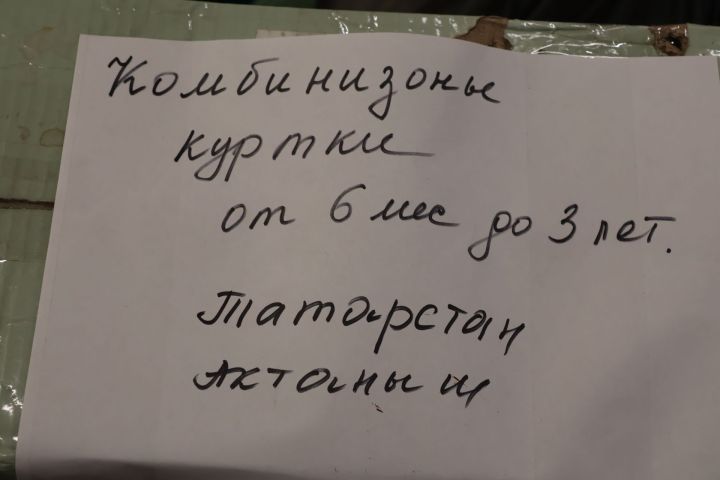 Комбинизоны
куртки
от 6 мес до 3 лет.
Татарстан
Актаныш